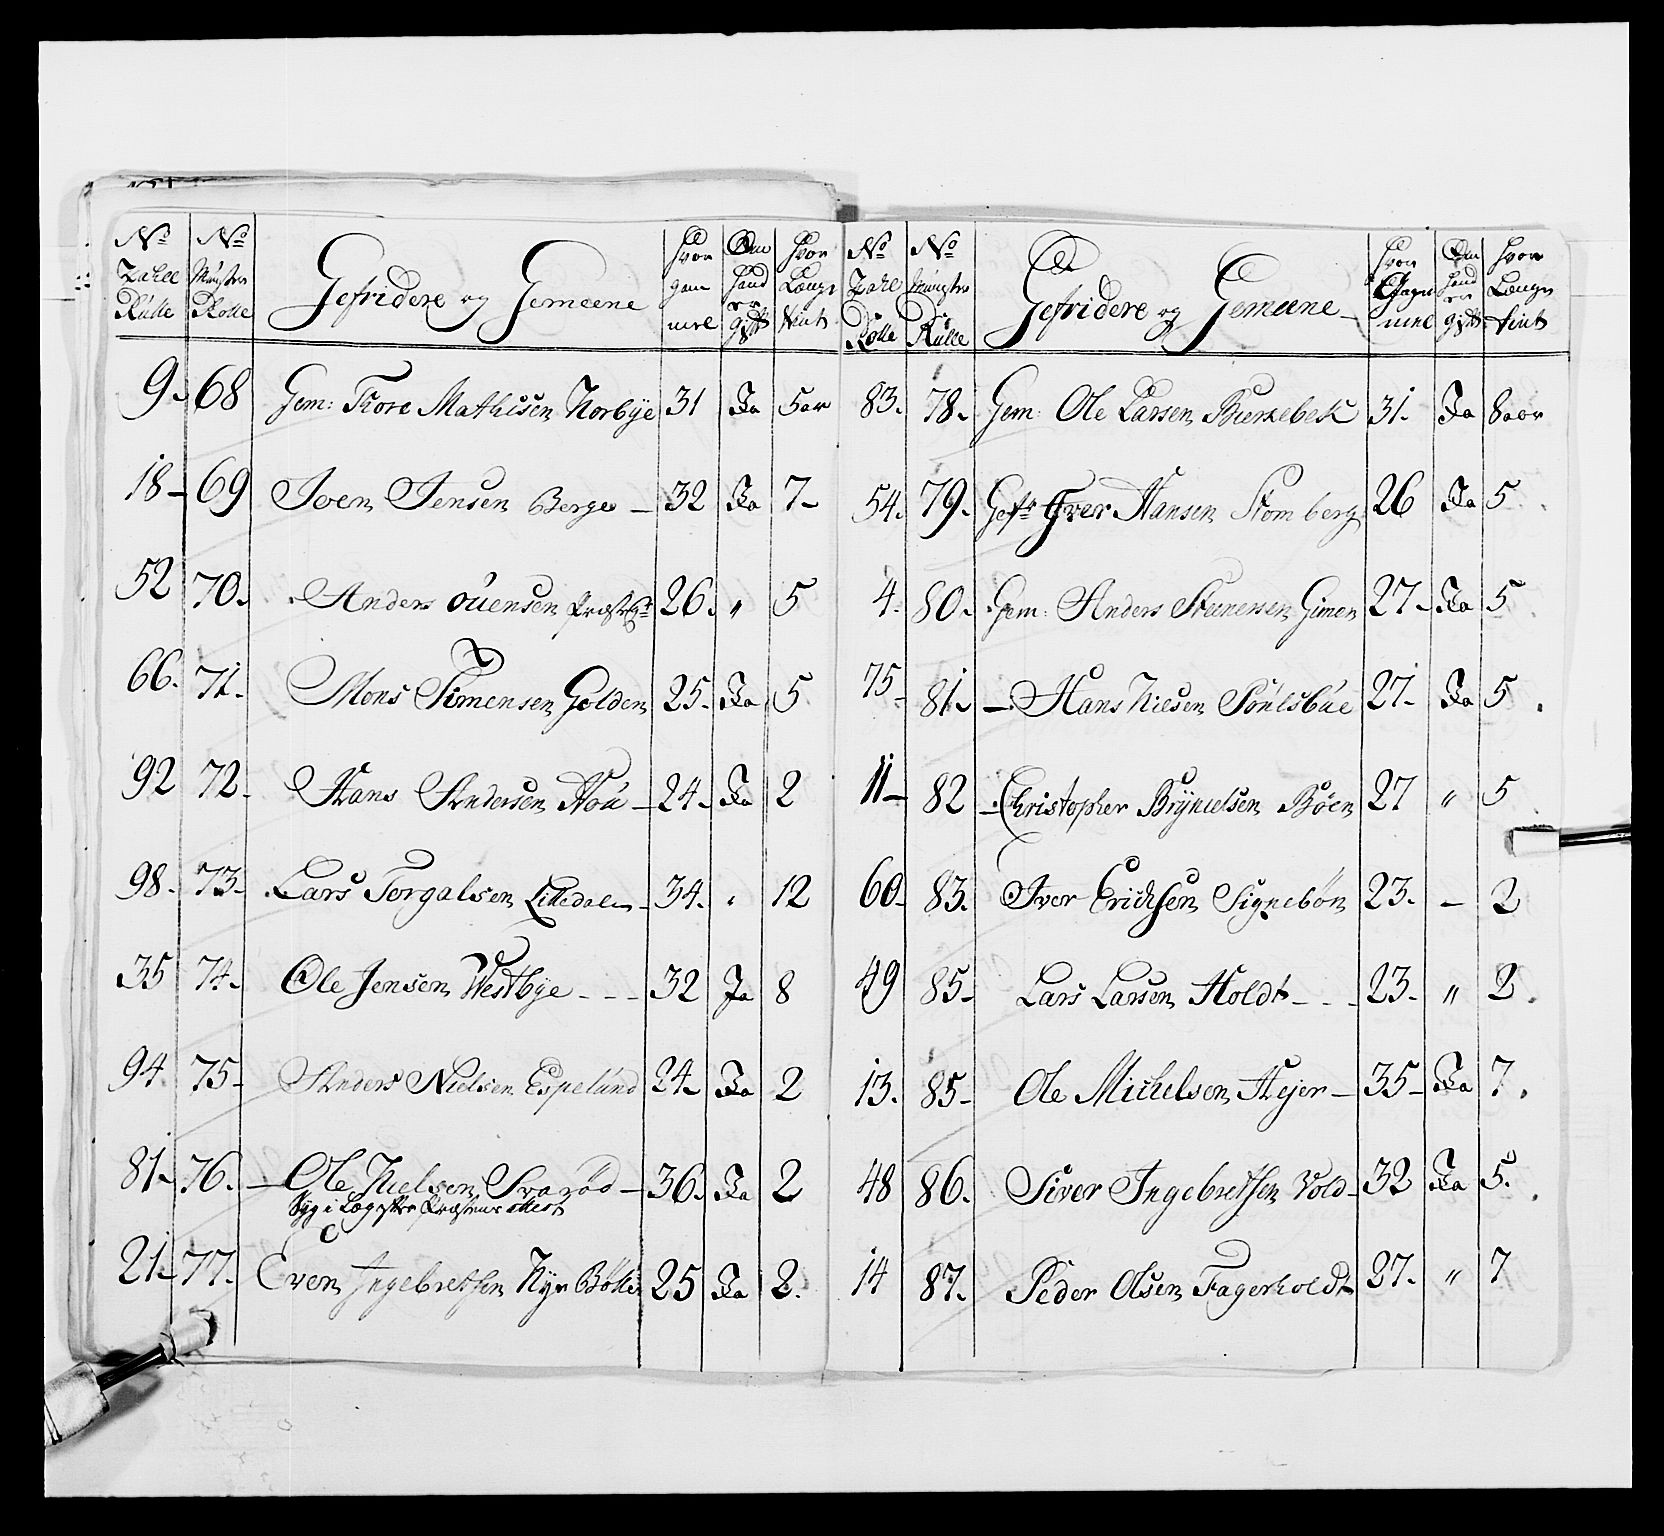 No Zahll Rulle | No Mönster Rolle | Gefridere og Gemeene | Hvor gam mel | Om hand er gift | Hvor Længe tient
9. 68 Gem: Tore Mathisen Norbÿe 31 Ja 5 aar
18 – 69 Joen Jensen Berge – 32 Ja 7 –
52 70. Anders ouensen 26. " 5
66. 71. Mons Simensen Golden 25. Ja 5
92 72. Hans Andersen Hou – 24. Ja 2
98. 73. Lars Torgalsen Lilledalen – 34. " 12
35 74. Ole Jensen Westbye - - - 32 Ja 8
94 75 – Anders Nielsen Espelund 24. Ja 2
81. 76. – Ole Nielsen Svarød – 36. Ja 2
Syg i Lægd
21. 77. Even Ingebretsen 25 Ja 2.
No Zahl Rolle | No Mönster Rulle | Gefridere og Gemeene – | Hvor gam mel | Om hand er gift | Hvor Længe tient
83. 78. Gem: Ole Larsen Bierkebek 31. Ja 8 aar
54. 79. Gefr Iver Hansen Stomberg 26 Ja 5
4. 80. Gem: Anders Steenersen Gimen 27 – Ja 5
75 – 81. – Hans Nielsen 27. Ja 5
11 – 82 – Christopher Brÿnielsen Bøen 27 " 5
60. 83. Iver Erichsen Signebøn 23. – 2
49 85. Lars Larsen Holdt - - - 23. " 2.
13. 85 – Ole Michelsen Hejer – 35 – Ja 7.
48 86. Siver Ingebretsen Vold – 32 Ja 5.
14 87. Peder Olsen Fagerholdt 27. " 7